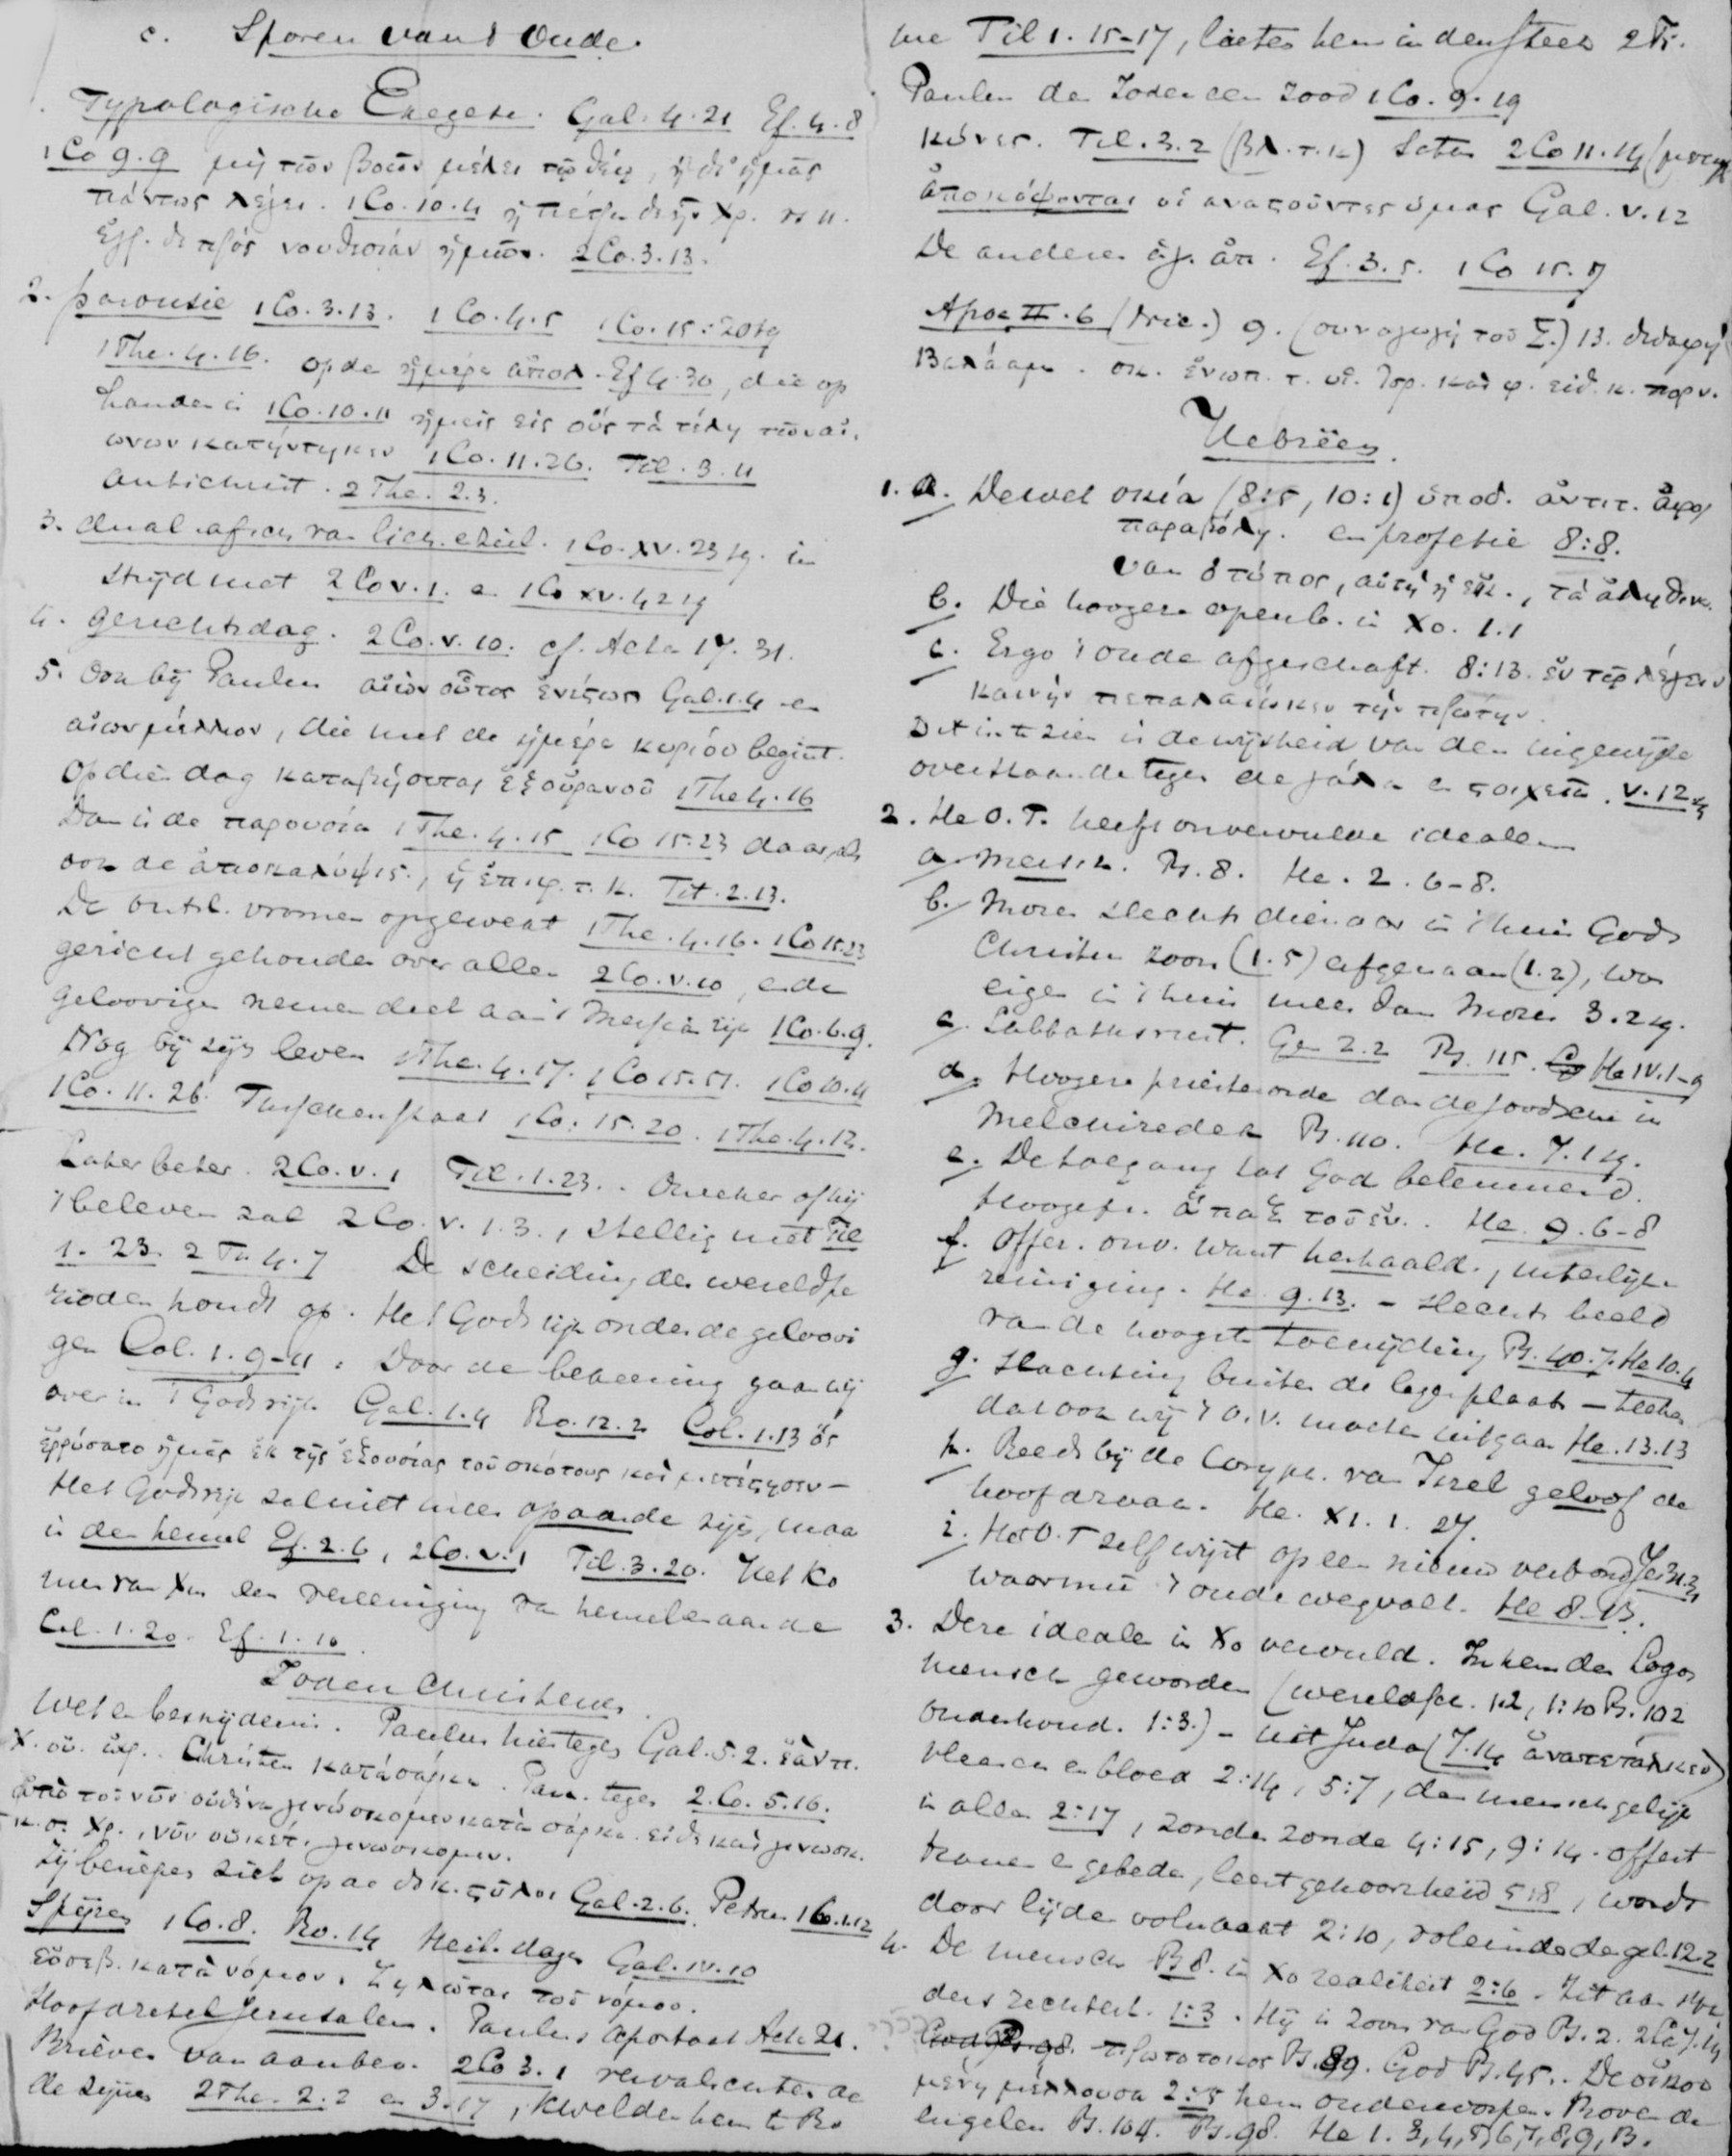 c. Sporen van 't Oude.
Typologische Exegese. Gal. 4.21 Ef. 4.8
1 Co 9.9 μὴ τῶν βοῶν μέλει τῷ θεῷ, ἢ δι' ἡμᾶς
πάντως λέγει. 1 Co. 10.4 ἡ πέτρα δὲ ἦν Χρ. vs 11.
ἐγρ. δὲ πρὸς νουθεσίαν ἡμῶν. 2 Co. 3.13.
2. parousie 1 Co. 3.13. 1 Co. 4.5 1 Co. 15:20 sq
1 The. 4.16. op de ἡμέρα ἀπολ. Ef 4.30, die op
handen is 1 Co. 10.11 ἡμεῖς εἰς οὓς τὰ τέλη τῶν αἰ.
ωνων κατήντηκεν 1 Co. 11.26. Fil. 3.11
antichrist. 2 The. 2.3.
3. dual. afsch. van lich. & ziel. 1 Co. XV. 23 sq. in
strijd met 2 Co V. 1. en 1 Co XV. 42 sq
4. gerichtsdag. 2 Co. V. 10. cf. Acta 17. 31.
5. Ook bij Paulus αἰὼν οὗτος ἐνεστώς Gal. 1.4 en
αἰὼν μέλλων, die met de ἡμέρα κυρίου begint.
Op dien dag καταβήσεται ἐξ οὐρανοῦ 1 The 4.16
Dan is de παρουσία 1 The. 4.15 1 Co 15.23 daar, als
ook de ἀποκαλύψις, ἡ ἐπιφ. τ. κ. Tit. 2.13.
De ontsl. vromen opgewekt 1 The. 4.16. 1 Co 15.23
gericht gehouden over allen 2 Co. V. 10, en de
geloovigen nemen deel aan 't Messiasrijk 1 Co. 6.9.
Nog bij zijn leven 1 The. 4.17. 1 Co 15.51. 1 Co 10.11
1 Co. 11.26. Tusschenstaat 1 Co. 15.20. 1 The. 4.13.
Later beter. 2 Co. V. 1 Fil. 1.23. Onzeker of hij
't beleven zal 2 Co. V. 1.3., stellig niet Fil
1. 23. 2 Ti. 4.7 De scheiding der wereldpe
rioden houdt op. Het Godsrijk onder de geloovi
gen Col. 1. 9-11: Door de bekeering gaan wij
over in 't Godsrijk Gal. 1.4 Ro. 12.2 Col. 1.13 ὃς
ἐρρύσατο ἡμᾶς ἐκ τῆς ἐξουσίας τοῦ σκότους καὶ μετέστησεν –
Het Godsrijk zal niet meer op aarde zijn, maar
in den hemel Ef. 2.6, 2 Co. V. 1 Fil. 3.20. Het ko
men van Xus een vereeniging van hemel en aarde
Col. 1.20. Ef. 1.10.
Joden Christenen.
Wet en besnijdenis. Paulus hiertegen Gal. 5.2. ἐὰν π.
Χ. οὐ. ὠφ. Christen κατὰ σάρκα. Paul. tegen 2 Co. 5.16.
ἀπὸ τοῦ νῦν οὐδένα γινώσκομεν κατὰ σάρκα. εἰ δὲ καὶ γινωσκ.
κ. σ. Χρ., νῦν οὐκέτι γινώσκομεν.
Zij beriepen zich op de δοκ. στῦλοι Gal. 2.6. Petrus 1 Co. 1.12
Spijzen 1 Co. 8. Ro. 14 Heil. dagen Gal. IV. 10
εὐσεβ. κατὰ νόμον. Ζηλωταὶ τοῦ νόμου.
Hoofdzetel Jerusalem. Paulus apostaat Acta 21.
Brieven van aanbev. 2 Co 3.1 vervalschten de
de zijne 2 The. 2.2 en 3.17, kwelden hem te Ro
me Fil 1. 15-17, lieten hem in den steek 2 Ti.
Paulus de Joden een Jood 1 Co. 9.19
κύνες. Fil. 3.2 (βλ. τ. κ) Satan 2 Co 11.14 (μετασχ
ἀποκόψονται οἱ ἀναστοῦντες ὑμας Gal. V. 12
De andere ἁγ. ἀπ. Ef. 3.5. 1 Co 15.7
Apoc II. 6 (Nic.) 9. (συναγωγὴ τοῦ Σ.) 13. διδαχὴ
Βαλάαμ. σκ. ἐνωπ. τ. υἱ. Ἰσρ. καὶ φ. εἰδ. κ. πορν.
Hebrëen.
1. a. De wet σκία (8:5, 10:1) ὑποδ. ἀντιτ.
παραβολη. en profetie 8:8.
van ὁ τύπος, αὐτὴ ἡ εἰκ., τὰ ἀληθινα.
b. Die hoogere openb. in Xo. 1.1
c. Ergo 't oude afgeschaft. 8:13. ἐν τῷ λέγειν
καινὴν πεπαλαίωκεν τὴν πρώτην.
Dit in te zien is de wijsheid van den ingewijde
overstaande tegen de γάλα en στοιχεῖα. V. 12 sq
2. He O.T. heeft onvervulde idealen
a. mensch. Ps. 8. He. 2. 6-8.
b. Mozes slechts dienaar in 't huis Gods
Christus zoon (1.5) erfgenaam (1.2), won
eigen in 't huis meer dan Mozes 3.2 sq.
c. Sabbathsrust. Gen 2.2 Ps. 115. He IV. 1-9
d. Hoogere priesterorde dan de Joodsche in
Melchizedek Ps. 110. He. 7.1 sq.
e. De toegang tot God belemmerd.
Hoogepr. ἅπαξ τοῦ ἐν. He. 9. 6-8
f. Offer. onv. want herhaald., uiterlijke
reiniging. He 9.13. – slechts beeld
van de hoogste toewijding Ps. 40.7. He 10.4
g. Slachting buiten de legerplaats – teeken
dat ook wij 't O.V. moeten uitgaan He. 13.13
h. Reeds bij de Coryph. van Israel geloof de
hoofdzaak. He. XI. 1. 27.
i. Het O.T zelf wijst op een nieuw verbond Jer. 31.31
waarmee 't oude wegvalt. He 8. 13.
3. Deze idealen in Xo vervuld. In hem de Logos
mensch geworden (wereldsch. 1:2, 1:10 Ps. 102
onderhoud. 1:3.) – uit Juda (7.14 ἀνατεταλκεν)
vleesch en bloed 2:14, 5:7, den mensch gelijk
in alles 2:17, zonder zonde 4:15, 9:14. offert
tranen en gebeden, leert gehoorzheid 5:8, wordt
door lijden volmaakt 2:10, voleinde de gel. 12.2
4. De mensch Ps 8. in Xo realiteit 2:6. Zit aan
ders rechterh. 1:3. Hij is Zoon van God Ps. 2. 2 Sa 7.14
God Ps. 98. πρωτοτοκος Ps. 89. God Ps. 45. De οἰκου
μένη μέλλουσα 2:5 hem onderworpen. Boven de
engelen Ps. 104. Ps. 98. He 1. 3, 4, 5, 6, 7, 8, 9, 13.